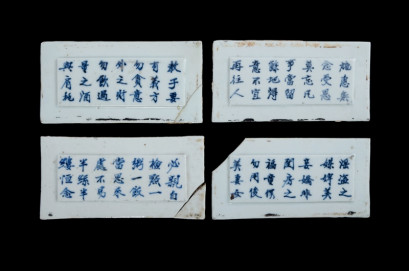 施惠無
念受恩
莫忘凡
事當留
餘地得
意不宜
再往人
教子要
有義方
勿貪意
外之財
勿飲過
量之酒
與肩挑
淫盜之
媒婢美
妾嬌非
閨房之
福童僕
勿用俊
美妻妾
必親自
檢點一
粥一飯
當思來
處不易
半絲半
縷恒念